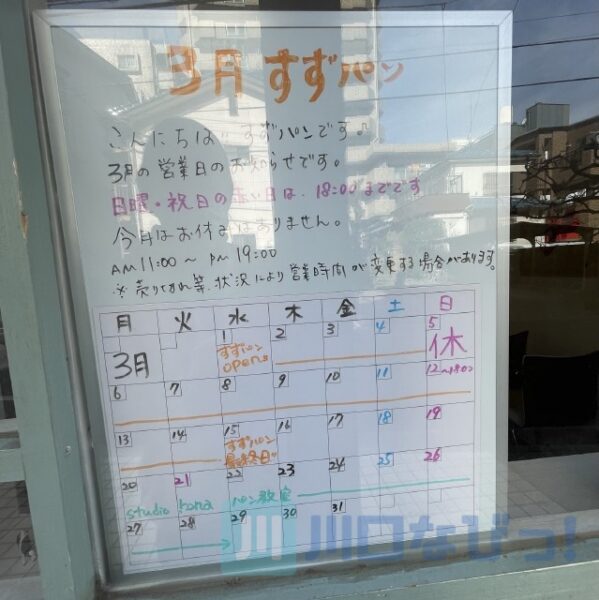 3月 すずパン
こんにちは すずパンです♪
3月の営業日のお知らせです。
日曜・祝日の赤い日は、18:00までです
今月はお休みはありません。
AM 11:00 〜 PM 19:00
※売りきれ等、状況により営業時間が変更する場合があります。
月 火 水 木 金 土 日
3月 1 すずパン opens 2 3 4 5 休
6 7 8 9 10 11 12 〜18:00
13 14 15 すずパン 最終日 16 17 18 19
20 21 22 23 24 25 26
studio hana パン教室
27 28 29 30 31
川口なびっ!